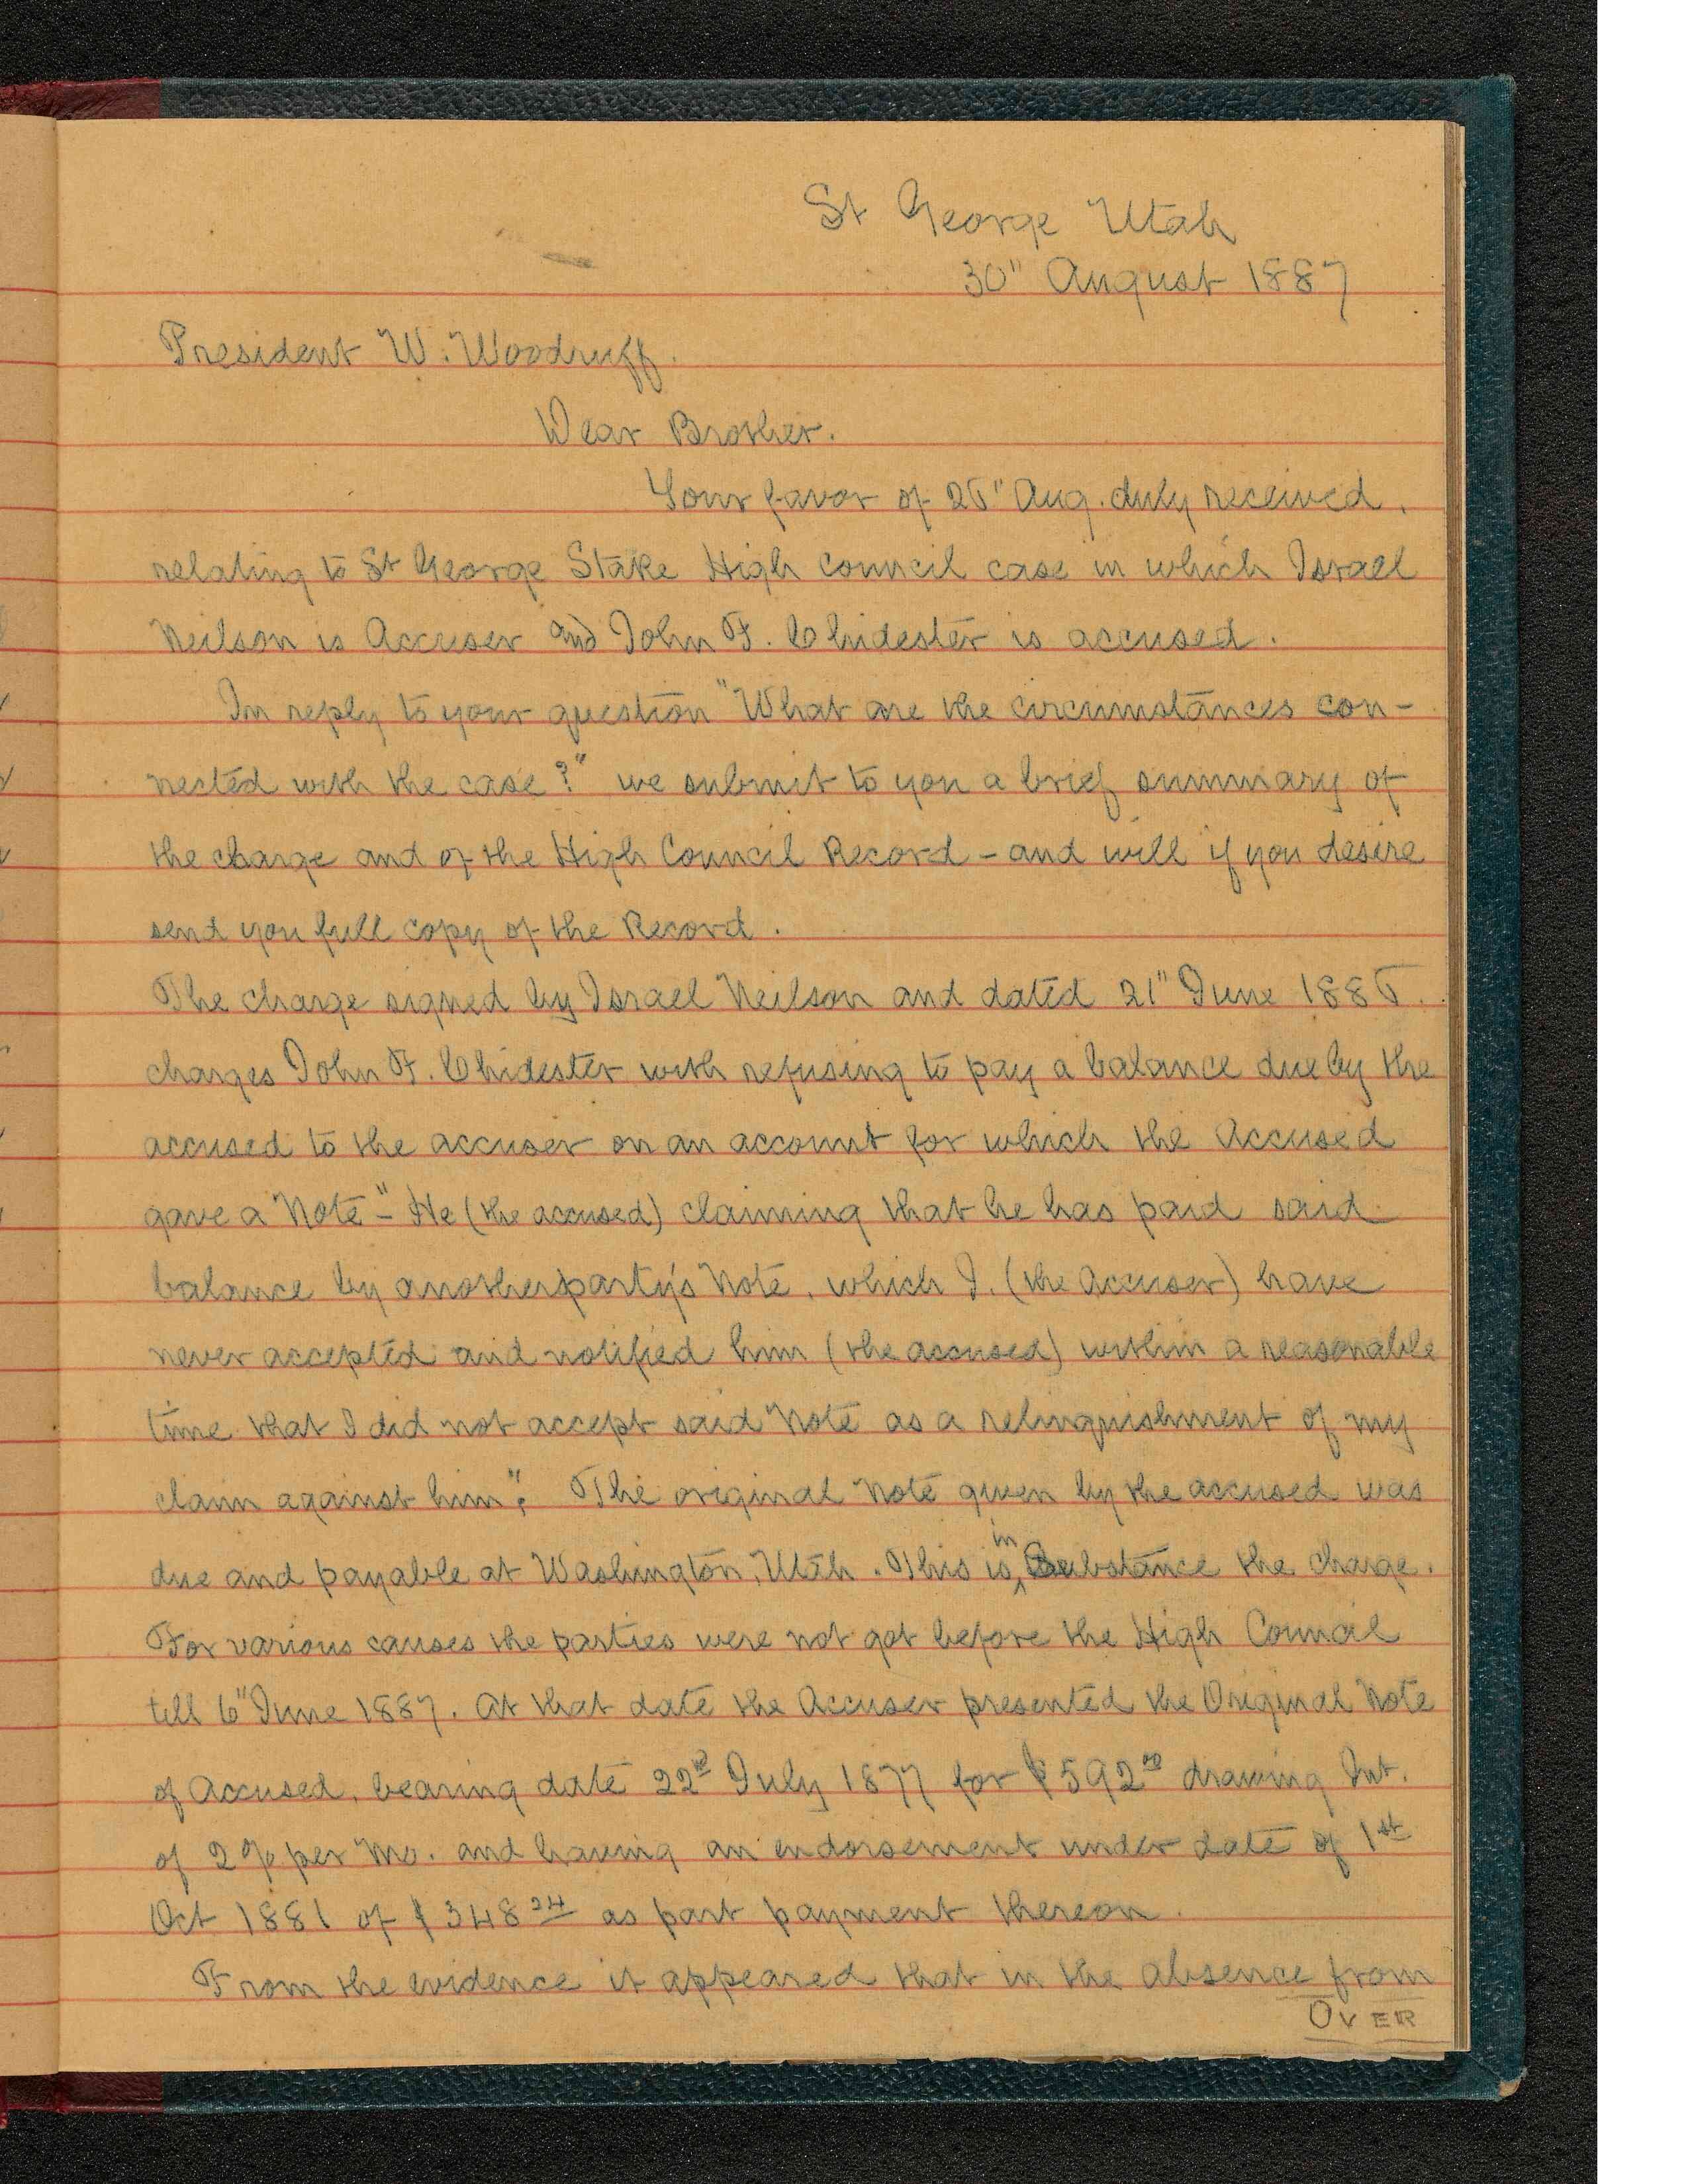 St George Utah
30" August 1887
President W. Woodruff.
Dear Brother.
Your favor of 25" Aug. duly received,
relating to St George Stake High Council case in which Israel
Neilson is Accuser and John F. Chidester is accused.
In reply to your question "What are the circumstances con-
nected with the case?" we submit to you a brief summary of
the charge and of the High Council Record - and will if you desire
send you full copy of the Record.
The charge signed by Israel Neilson and dated 21" June 1885.
charges John F. Chidester with refusing to pay a balance due by the
accused to the accuser on an account for which the Accused
gave a Note "- He (the accused) claiming that he has paid said
balance by another party's Note, which I. (the Accuser) have
never accepted and notified him (the accused) within a reasonable
time that I did not accept said Note as a relinquishment of my
claim against him". The original Note given by the accused was
due and payable at Washington, Utah. This is in Substance the charge.
For various causes the parties were not got before the High Council
till 6" June 1887. At that date the Accuser presented the Original Note
of Accused, bearing date 22d July 1877 for $592 00 drawing Int.
of 2 % per Mo. and having an endorsement under date of 1st
Oct 1881 of $348 24 as part payment thereon.
From the evidence it appeared that in the absence from
OVER